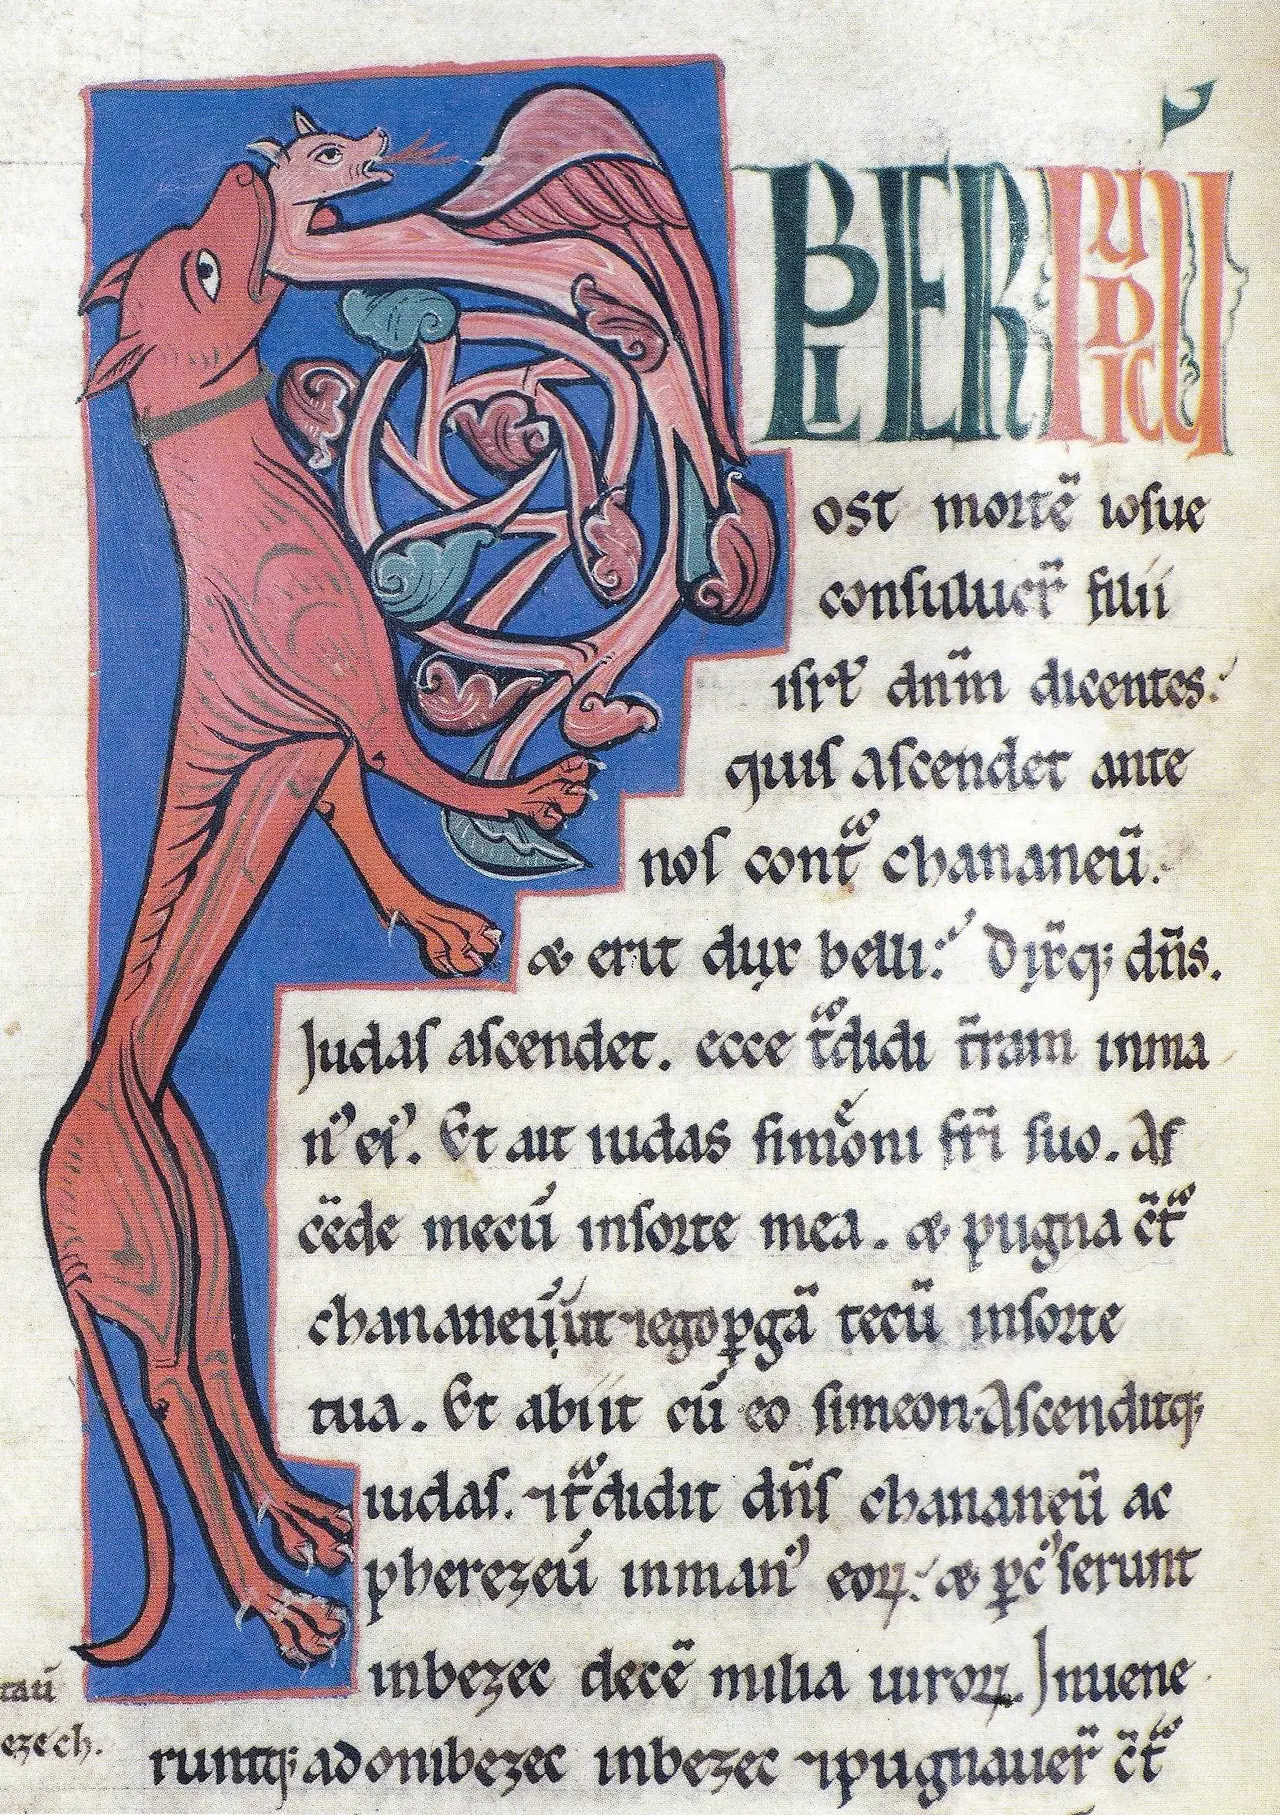 LIBER IUDICUM
ost mortē iosue
consuluer̄ filii
isrl̄ dn̄m dicentes.
quis ascendet ante
nos contͣ chananeū.
& erit dux belli? Dix̄q; dn̄s.
Judas ascendet. ecce tͣdidi t̄ram inma
nꝰ eiꝰ. Et ait iudas simeoni fr̄i suo. As
cēde mecū insorte mea. & pugna c̄tͣ
chananeū ut ⁊ ego ꝑgā tecū insorte
tua. Et abiit cū eo simeon. Ascenditq;
iudas. ⁊ tͣdidit dn̄s chananeū ac
pherezeū inmanꝰ eoꝝ. & ꝑcꝰserunt
inbezec decē milia uiroꝝ. Inuene
runtq; adonibezec inbezec ⁊ pugnauer̄ c̄tͣ
tau
ezech.